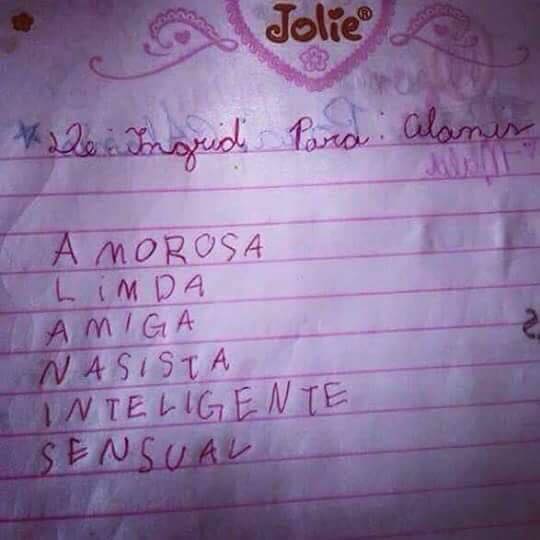 Jolie®
De: Ingrid Para: Alanis
AMOROSA
LiMDA
AMIGA
NASISTA
INTELIGENTE
SENSUAL